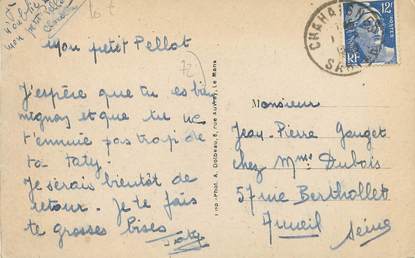 Mon petit Pellot
J'espère que tu es bien
mignon et que tu ne
t'ennuie pas trop de
ta taty.
Je serais bientôt de
retour. Je te fais
te grosses bises
Taty
72
Imp.-Phot. A. Dolbeau, 8, rue Auvray, Le Mans
CHAHAIGNES
SARTHE
12F
POSTES
RF
Monsieur
Jean-Pierre Gouget
chez Mme Dubois
57 rue Berthollet
Arcueil
Seine